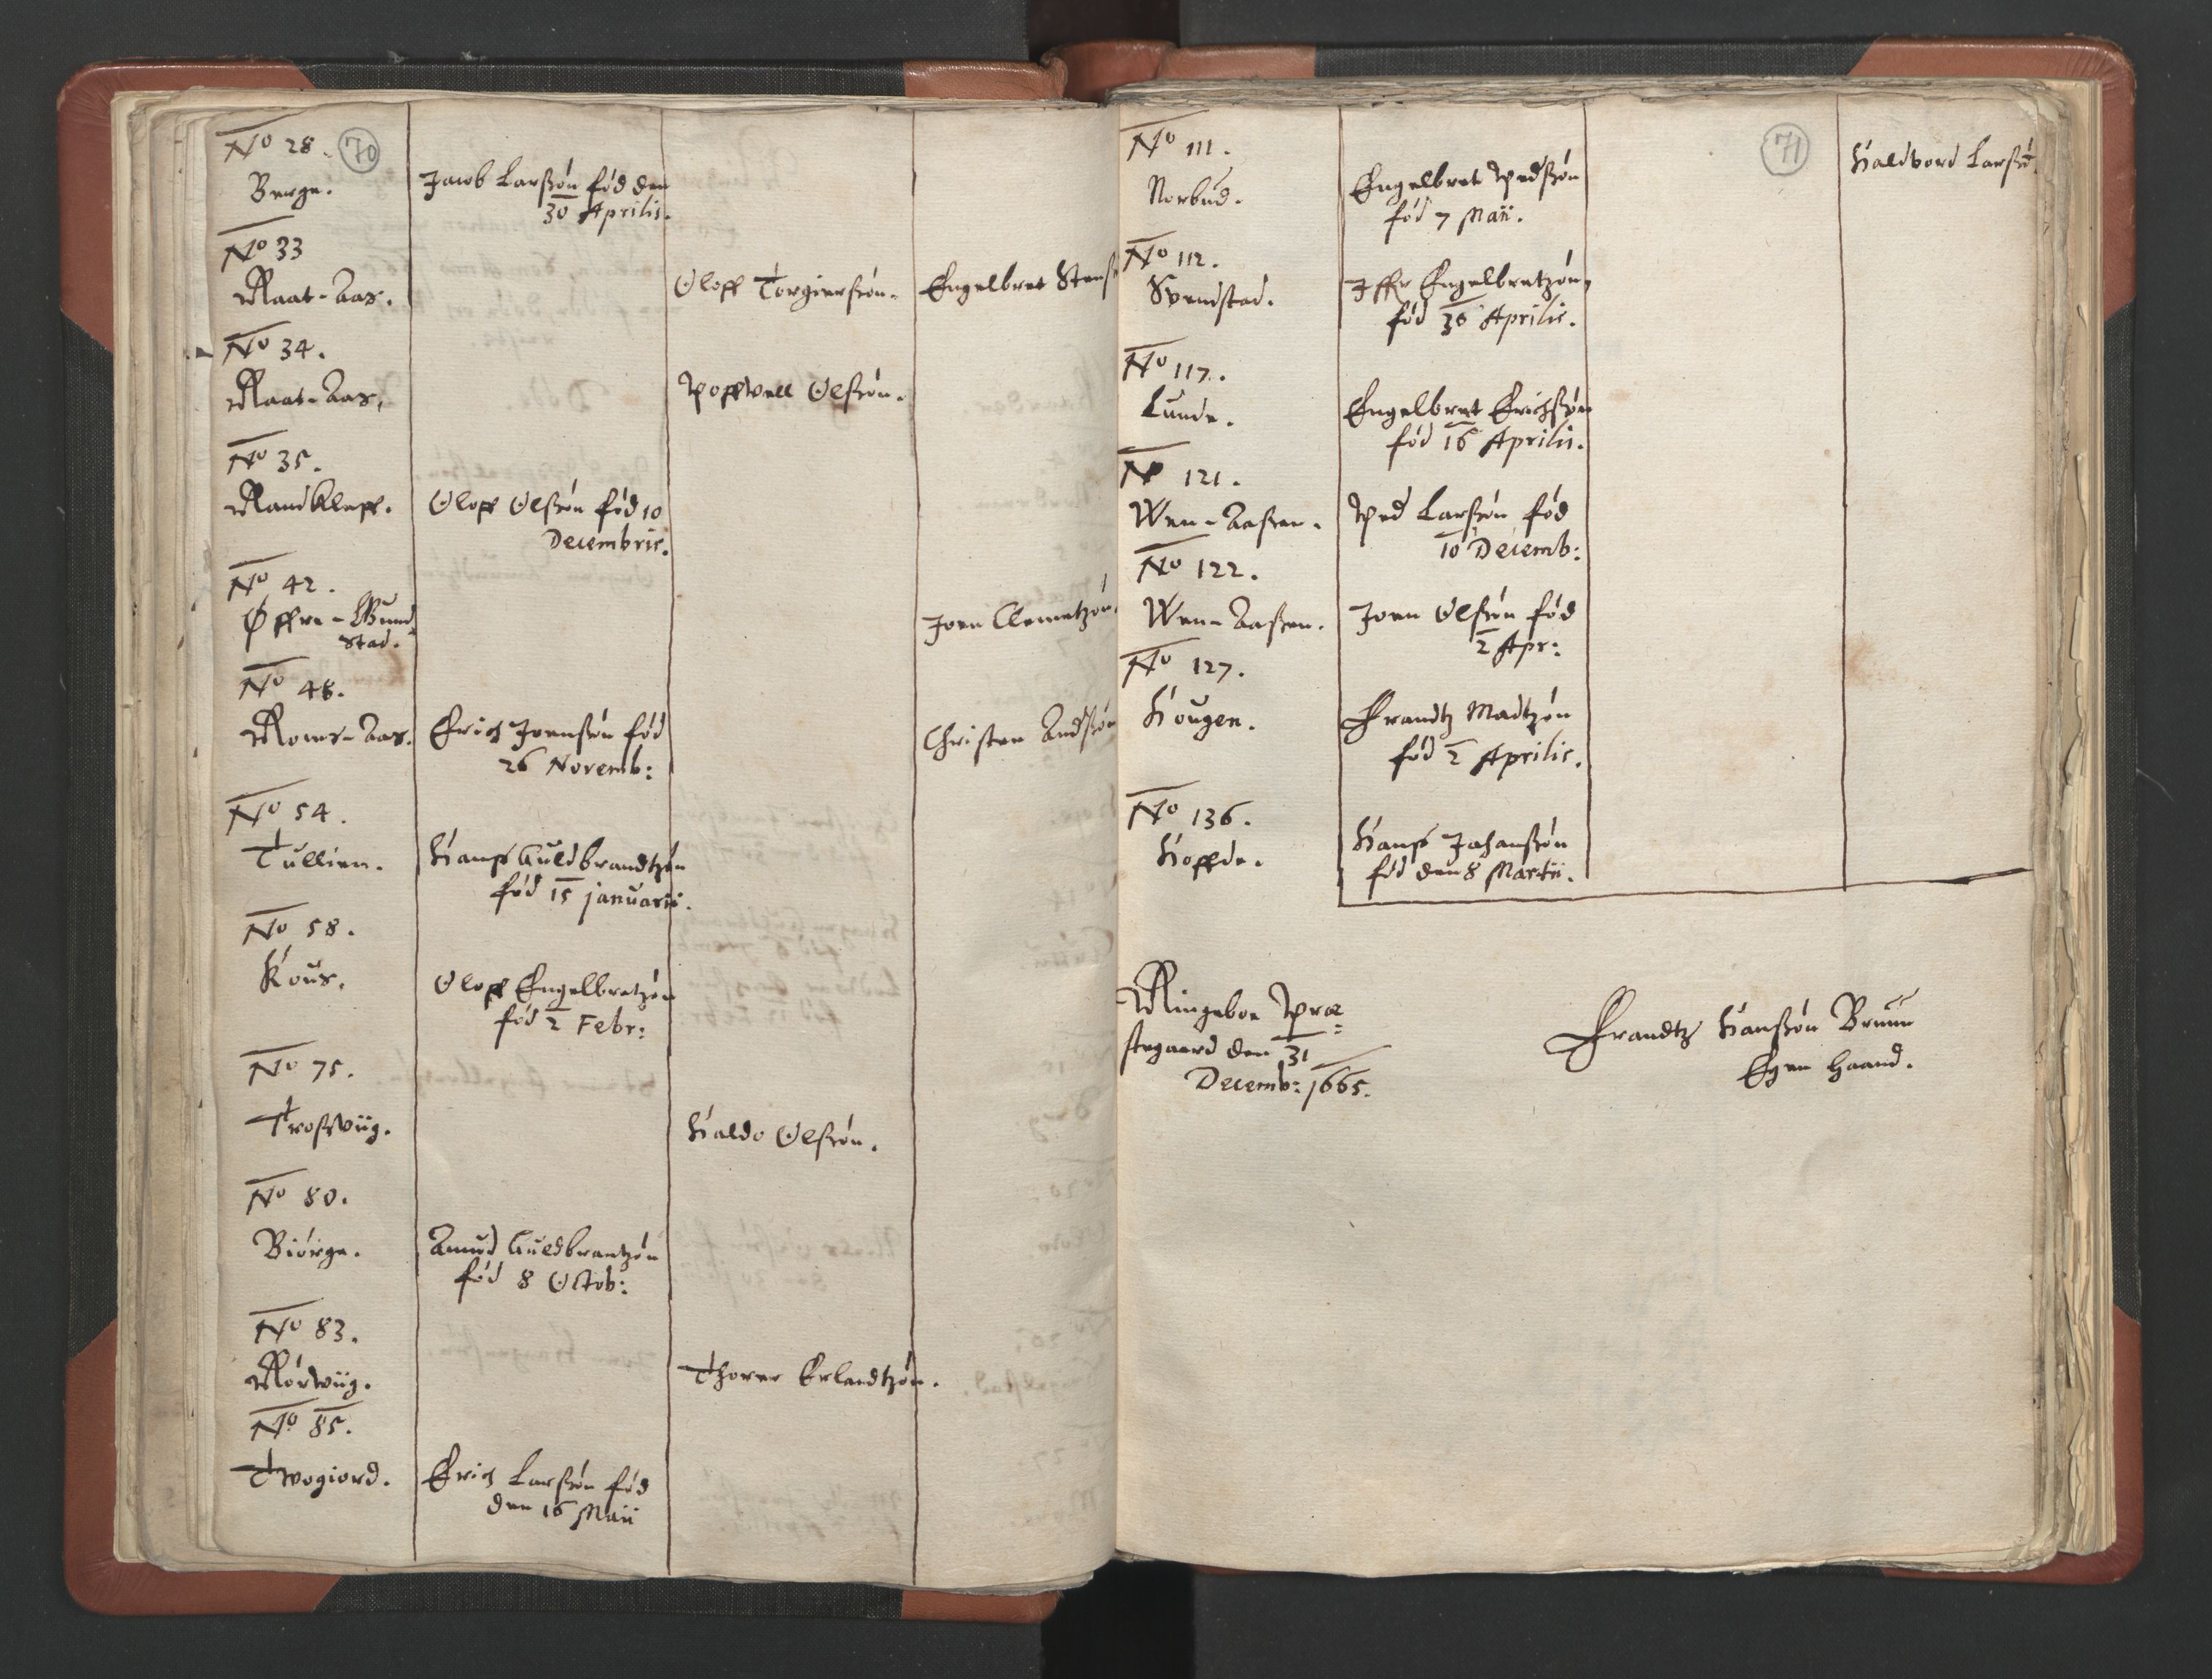 No 28. 70
Berge. Jacob Larßøn fød den
30 Aprilis.
No 33
Raat-Aas. Oloff Torgierßøn. Engelbret Stens
No 34.
Raat-Aas, Poffwell Olßøn.
No 35.
RandKleff. Oloff Olßøn fød 10
Decembris.
No 42.
Øffre-Wund
Stad. Joen Clemetzøn.
No 48.
Roms-Aas. Erich Joenßøn fød Christen Andßøn
26 Novemb:
No 54.
Tullien. Hanß Guldbrandtzøn
fød 15 januarii.
No 58.
Kous. Oloff Engelbretzøn
fød 2 Febr:
No 75.
Troßwiig. Haldo Olßøn.
No 80.
Biørge. Amud Guldbrantzøn
fød 8 Octob:
No 83.
Rørwiig. Thorer Erlandtzøn.
No 85.
Twogiord. Erich Larßøn fød
den 16 Maii
No 111. 71 Haldvord Larßø̄.
Norbud. Engelbret Pedßøn
fød 7 Maii.
No 112.
Svendstad. Iffr Engelbretzøn,
fød 30 Aprilis.
No 117.
Lunde. Engelbret Erichßøn
fød 16 Aprilis.
No 121.
Wen-Aaßen. Ped Larßøn fød
10 Decemb:
No 122.
Wen-Aaßen. Joen Olßøn fød
2 Apr:
No 127.
Hougen. Frandtz Madtzøn
fød 2 Aprilis.
No 136.
Hoffde. Hanß Johanßøn
fød den 8 Martii.
Ringeboe Præ=
stegaard den 31
Decemb: 1665.
Frandtz Hanßøn Bruun
Egen Haand.